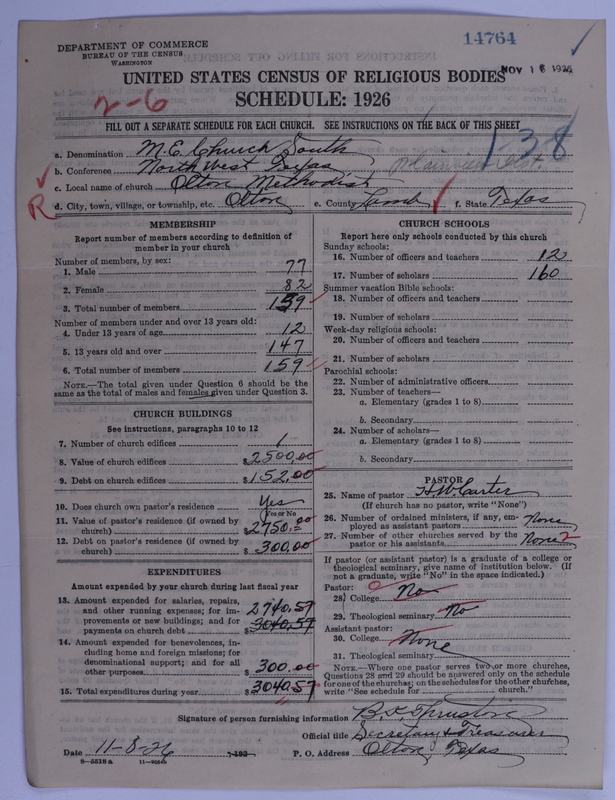 14764
DEPARTMENT OF COMMERCE
BUREAU OF THE CENSUS
WASHINGTON
NOV 16 1926
UNITED STATES CENSUS OF RELIGIOUS BODIES
2-6
SCHEDULE: 1926
FILL OUT A SEPARATE SCHEDULE FOR EACH CHURCH. SEE INSTRUCTIONS ON THE BACK OF THIS SHEET
138
a. Denomination M.E. Church South
b. Conference North West Texas Plainview
c. Local name of church Olton Methodist
R
d. City, town, village, or township, etc. Olton e. County Lamb f. State Texas
MEMBERSHIP
Report number of members according to definition of
member in your church
Number of members, by sex:
1. Male 77
2. Female 82
3. Total number of members 159
Number of members under and over 13 years old:
4. Under 13 years of age 12
5. 13 years old and over 147
6. Total number of members 159
NOTE.—The total given under Question 6 should be the
same as the total of males and females given under Question 3.
CHURCH BUILDINGS
See instructions, paragraphs 10 to 12
7. Number of church edifices 1
8. Value of church edifices $2500.00
9. Debt on church edifices $152.00
10. Does church own pastor's residence Yes
Yes or No
11. Value of pastor's residence (if owned by
church) $2750.00
12. Debt on pastor's residence (if owned by
church) $300.00
EXPENDITURES
Amount expended by your church during last fiscal year
13. Amount expended for salaries, repairs,
and other running expense; for im-
provements or new buildings; and for
payments on church debt $3040.57
2740.57
14. Amount expended for benevolences, in-
cluding home and foreign missions; for
denominational support; and for all
other purposes $300.00
15. Total expenditures during year $3040.57
CHURCH SCHOOLS
Report here only schools conducted by this church
Sunday schools:
16. Number of officers and teachers 12
17. Number of scholars 160
Summer vacation Bible schools:
18. Number of officers and teachers
19. Number of scholars
Week-day religious schools:
20. Number of officers and teachers
21. Number of scholars
Parochial schools:
22. Number of administrative officers
23. Number of teachers—
a. Elementary (grades 1 to 8)
b. Secondary
24. Number of scholars—
a. Elementary (grades 1 to 8)
b. Secondary
PASTOR
25. Name of pastor H.W. Carter
(If church has no pastor, write "None")
26. Number of ordained ministers, if any, em-
ployed as assistant pastors None
27. Number of other churches served by the
pastor or his assistants None 2
If pastor (or assistant pastor) is a graduate of a college or
theological seminary, give name of institution below. (If
not a graduate, write "No" in the space indicated.)
Pastor:
28. College No
29. Theological seminary No
Assistant pastor:
30. College None
31. Theological seminary
NOTE.—Where one pastor serves two or more churches,
Questions 28 and 29 should be answered only on the schedule
for one of the churches; on the schedules for the other churches,
write "See schedule for church."
Signature of person furnishing information B.F. Thruston
Official title Secretary & Treasurer
Date 11-8-26 , 192 P. O. Address Olton, Texas
8—5518a